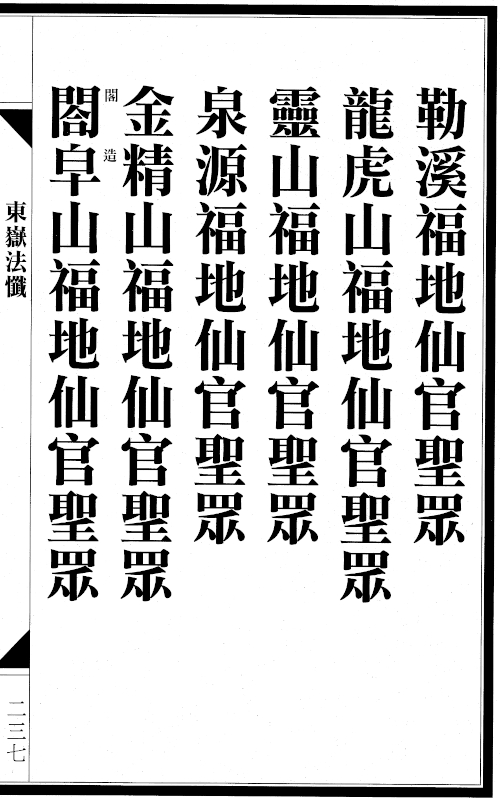 勒溪福地仙官聖眾
龍虎山福地仙官聖眾
靈山福地仙官聖眾
泉源福地仙官聖眾
金精山福地仙官聖眾
閤 造
閤皁山福地仙官聖眾
東嶽法懺
二三七